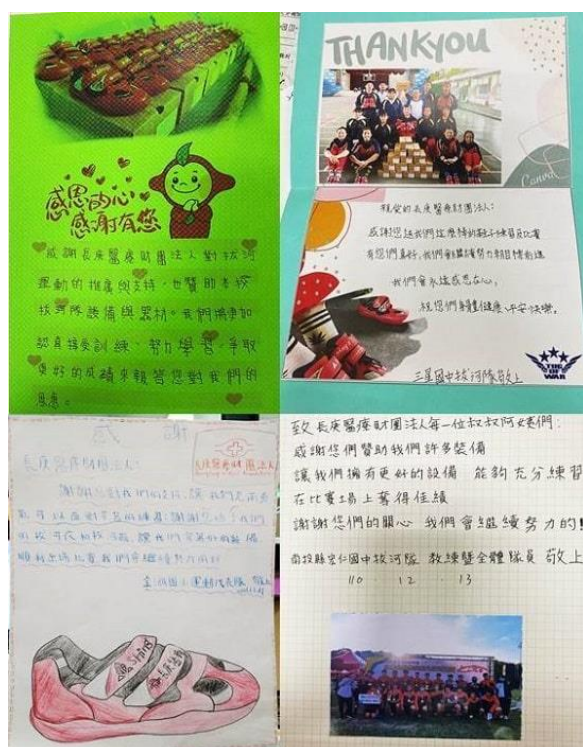 感恩的心
感謝有您
感謝長庚醫療財團法人對拔河
運動的推廣與支持，也贊助本校
拔河隊設備與器材。我們將更加
認真接受訓練、努力學習，爭取
更好的成績來報答您對我們的
恩惠。
THANK YOU
Canva
親愛的長庚醫療財團法人:
感謝您送我們這麼棒的鞋子練習及比賽
有您們真好，我們會繼續努力朝目標前進
我們會永遠感恩在心，
祝您們身體健康、平安快樂。
三星國中拔河隊敬上
TUG
OF
WAR
感謝
長庚醫療財團法人:
長庚醫療財團法人
順利出場比賽我們會繼續努力的
致 長庚醫療財團法人每一位叔叔阿姨們:
感謝您們贊助我們許多裝備
讓我們擁有更好的設備 能夠充分練習
在比賽場上奪得佳績
謝謝您們的關心 我們會繼續努力的!
南投縣宏仁國中拔河隊 教練暨全體隊員 敬上
110 12 13